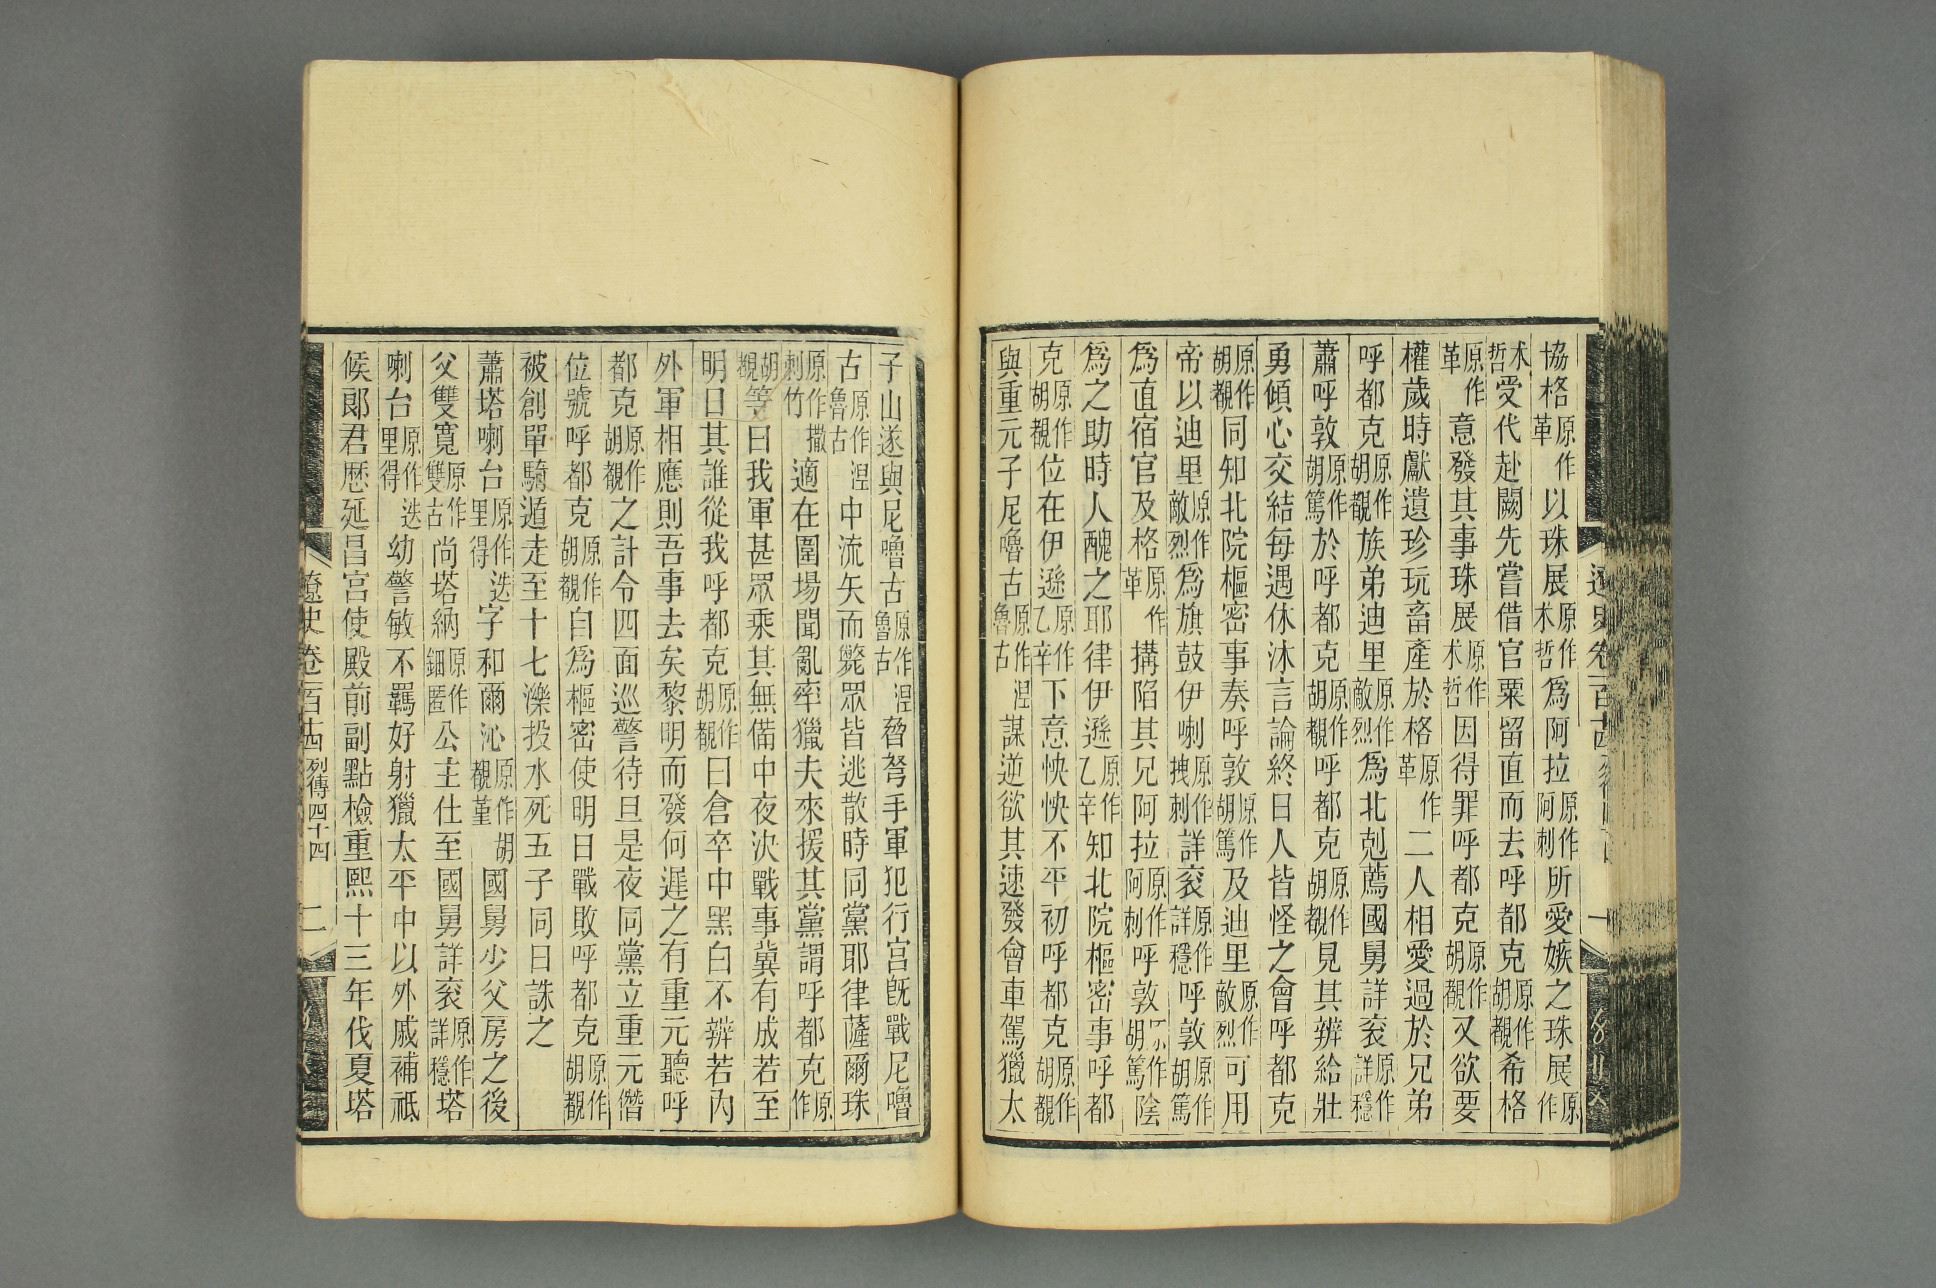 協格原作革以珠展原作朮哲爲阿拉原作阿剌所愛嫉之珠展原作
朮哲受代赴闕先嘗借官粟留直而去呼都克原作胡覩希格
原作革意發其事珠展原作朮哲因得罪呼都克原作胡覩又欲要
權歲時獻遺珍玩畜產於格原作革二人相愛過於兄弟
呼都克原作胡覩族弟迪里原作敵烈爲北剋薦國舅詳衮原作詳穩
蕭呼敦原作胡篤於呼都克原作胡覩呼都克原作胡覩見其辨給壯
勇傾心交結每遇休沐言論終日人皆怪之會呼都克
原作胡覩同知北院樞密事奏呼敦原作胡篤及迪里原作敵烈可用
帝以迪里原作敵烈爲旗鼓伊喇原作拽剌詳衮原作詳穩呼敦原作胡篤
爲直宿官及格原作革搆陷其兄阿拉原作阿剌呼敦原作胡篤陰
爲之助時人醜之耶律伊遜原作乙辛知北院樞密事呼都
克原作胡覩位在伊遜原作乙辛下意怏怏不平初呼都克原作胡覩
與重元子尼嚕古原作涅魯古謀逆欲其速發會車駕獵太
子山遂與尼嚕古原作涅魯古脅弩手軍犯行宮旣戰尼嚕
古原作涅魯古中流矢而斃眾皆逃散時同黨耶律薩爾珠
原作撒剌竹適在圍場聞亂率獵夫來援其黨謂呼都克原作
胡覩等曰我軍甚眾乘其無備中夜決戰事冀有成若至
明日其誰從我呼都克原作胡覩曰倉卒中黑白不辨若內
外軍相應則吾事去矣黎明而發何遲之有重元聽呼
都克原作胡覩之計令四面巡警待旦是夜同黨立重元僭
位號呼都克原作胡覩自爲樞密使明日戰敗呼都克原作胡覩
被創單騎遁走至十七濼投水死五子同日誅之
蕭塔喇台原作迭里得字和爾沁原作胡覩堇國舅少父房之後
父雙寬原作雙古尚塔納原作鈿匿公主仕至國舅詳衮原作詳穩塔
喇台原作迭里得幼警敏不羈好射獵太平中以外戚補祗
候郎君歷延昌宮使殿前副點檢重熙十三年伐夏塔
遼史卷一百十四 列傳四十四 二